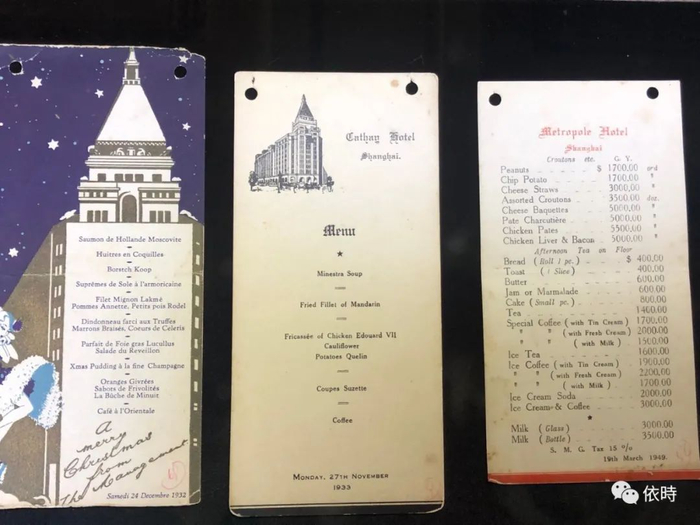 Saumon de Hollande Moscovite
Huitres en Coquilles
Borstch Koop
Suprêmes de Sole à l'armoricaine
Filet Mignon Lakmé
Pommes Annette, Petits pois Rodel
Dindonneau farci aux Truffes
Marrons Braisés, Coeurs de Celeris
Parfait de Foie gras Lucullus
Salade du Reveillon
Xmas Pudding à la fine Champagne
Oranges Givrées
Sabots de Frivolités
La Bûche de Minuit
Café à l'Orientale
A
merry
Christmas
from
The Management
Samedi 24 Decembre 1932
Cathay Hotel
Shanghai.
Menu
Minestra Soup
Fried Fillet of Mandarin
Fricassée of Chicken Edouard VII
Cauliflower
Potatoes Quelin
Coupes Suzette
Coffee
Monday, 27th November
1933
Metropole Hotel
Shanghai
Croutons etc. G. Y.
Peanuts $ 1700.00 ord
Chip Potato 1700.00 "
Cheese Straws 3000.00 "
Assorted Croutons 3500.00 doz.
Cheese Baquettes 5000.00 "
Pate Charcutière 5000.00 "
Chicken Pates 5500.00 "
Chicken Liver & Bacon 5000.00 "
Afternoon Tea on Floor
Bread (Roll 1 pc.) $ 400.00
Toast (1 Slice) 400.00
Butter 600.00
Jam or Marmalade 600.00
Cake (Small pc.) 800.00
Tea 1400.00
Special Coffee (with Tin Cream) 1700.00
" " (with Fresh Cream) 2000.00
" " (with Milk) 1500.00
Ice Tea 1600.00
Ice Coffee (with Tin Cream) 1900.00
" " (with Fresh Cream) 2200.00
" " (with Milk) 1700.00
Ice Cream Soda 2000.00
Ice Cream & Coffee 3000.00
Milk (Glass) 3000.00
Milk (Bottle) 3500.00
S. M. G. Tax 15 %
19th March 1949.
依時